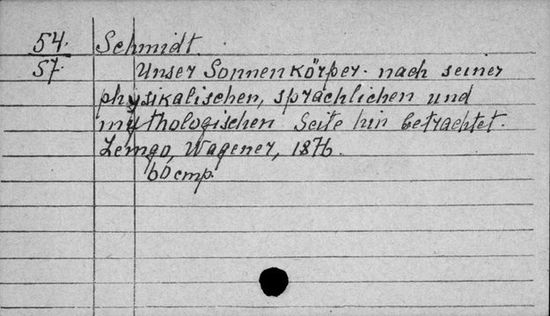 54. Schmidt.
57. Unser Sonnenkörper nach seiner
physikalischen, sprachlichen und
mythologischen Seite hin betrachtet.
Lemgo, Wagener, 1876.
60 cmp.